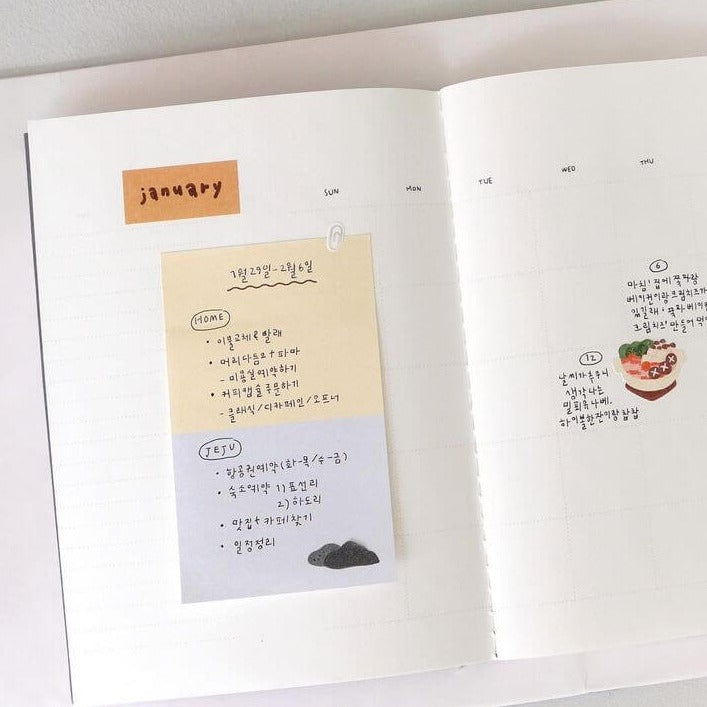 january
SUN MON TUE WED THU
1월 29일 - 2월 6일
HOME
• 이불교체 & 빨래
• 머리다듬고 + 파마
- 미용실예약하기
• 커피캡슐주문하기
- 클래식/디카페인/오프너
JEJU
• 항공권예약 (화-목/수-금)
• 숙소예약 1) 표선리
2) 하도리
• 맛집 + 카페찾기
• 일정정리
6
마침! 집에 쪽파랑
베이컨이랑 크림치즈가
있길래 '쪽파 베이
크림치즈' 만들어 먹
12
날씨가 추우니
생각나는
밀푀유나베.
하이볼한잔이랑 찹찹